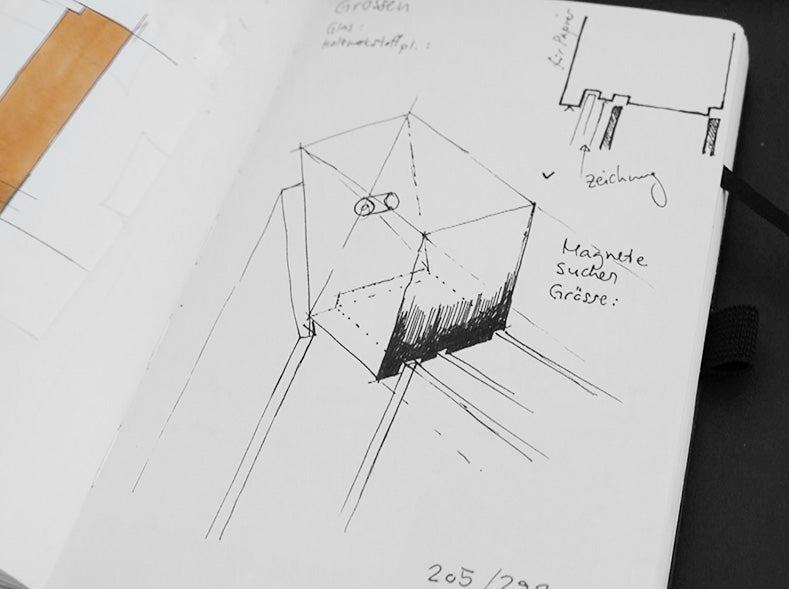 Grössen
Glas:
Holzwerkstoffpl.:
für Papier
Zeichnung
Magnete
suchen
Grösse:
205/29